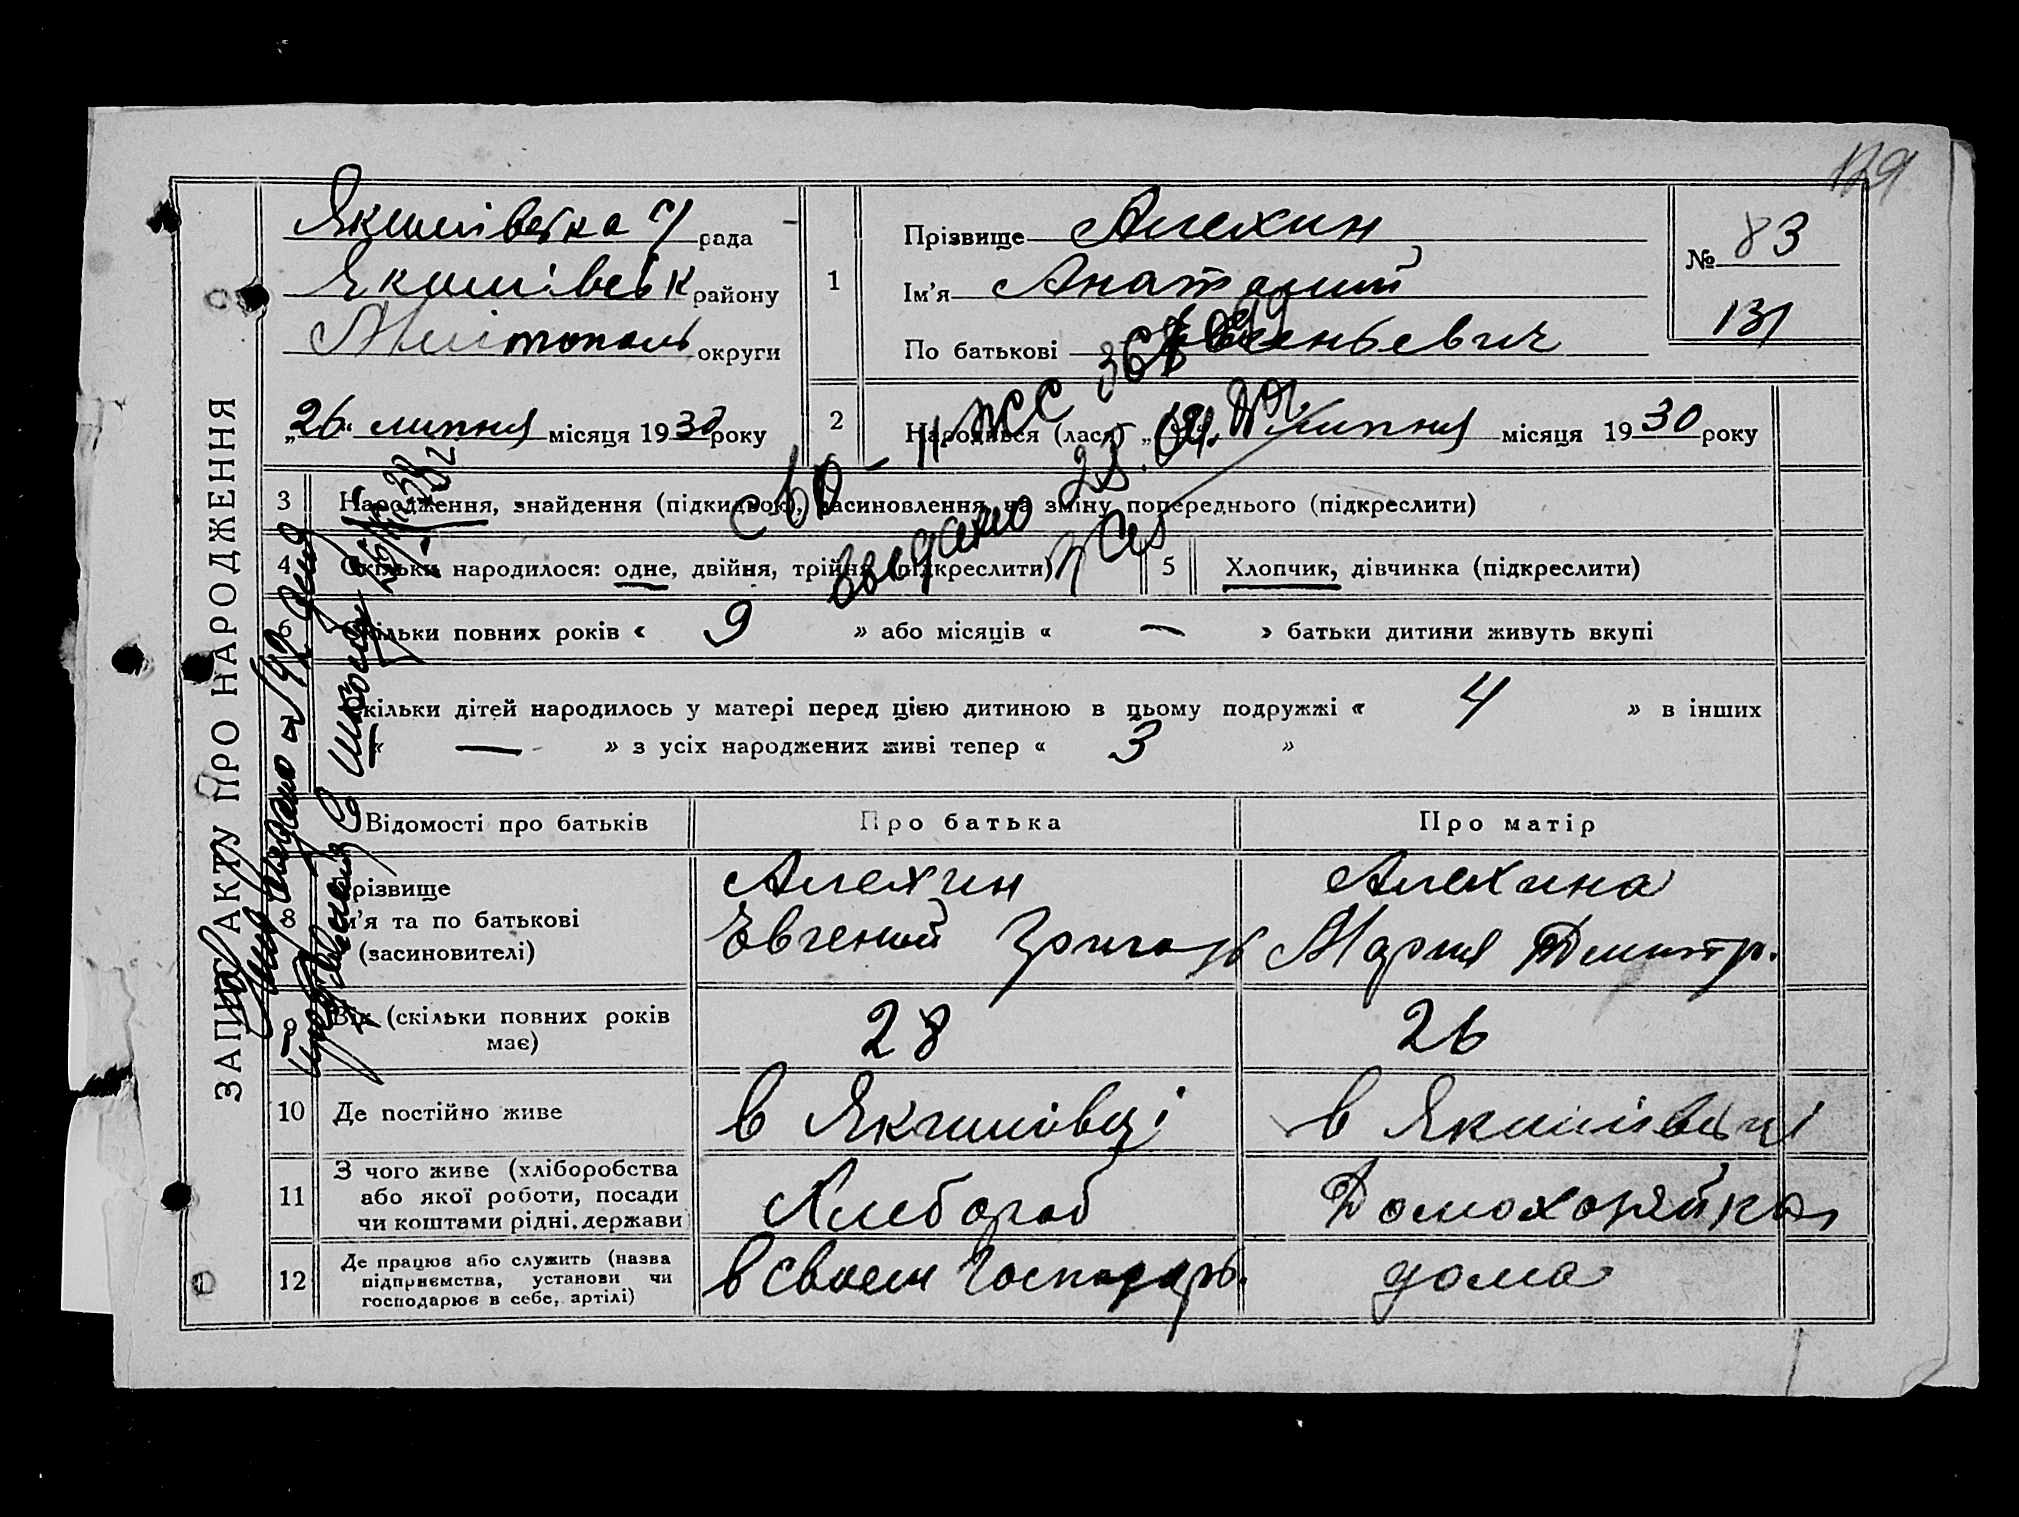 129
ЗАПИС АКТУ ПРО НАРОДЖЕННЯ
Якимівська с/рада
Якимівськ району
Мелітополь округи
„26“ липня місяця 1930 року
1
Прізвище Алехин
Ім’я Анатолий
По батькові Евгеньевич
№ 83
131
2
Народився (лася) „ липня місяця 1930 року
3 Народження, знайдення (підкидьою), засиновлення, на зміну попереднього (підкреслити)
4 Скільки народилося: одне, двійня, трійня (підкреслити)
5 Хлопчик, дівчинка (підкреслити)
6 Скільки повних років « 9 » або місяців « — » батьки дитини живуть вкупі
Скільки дітей народилось у матері перед цією дитиною в цьому подружжі « 4 » в інших
« — » з усіх народжених живі тепер « 3 »
Відомості про батьків
Про батька
Про матір
8
Прізвище
Ім’я та по батькові
(засиновителі)
Алехин
Евгений Григорь
Алехина
Мария Дмитр.
9 Вік (скільки повних років
має)
28
26
10 Де постійно живе
в Якимівці
в Якимівці
11
З чого живе (хліборобства
або якої роботи, посади
чи коштами рідні, держави
Хлебороб
Домохозяйка
12
Де працює або служить (назва
підприємства, установи чи
господарює в себе, артілі)
в своем господарь.
дома
выдано 28.04.